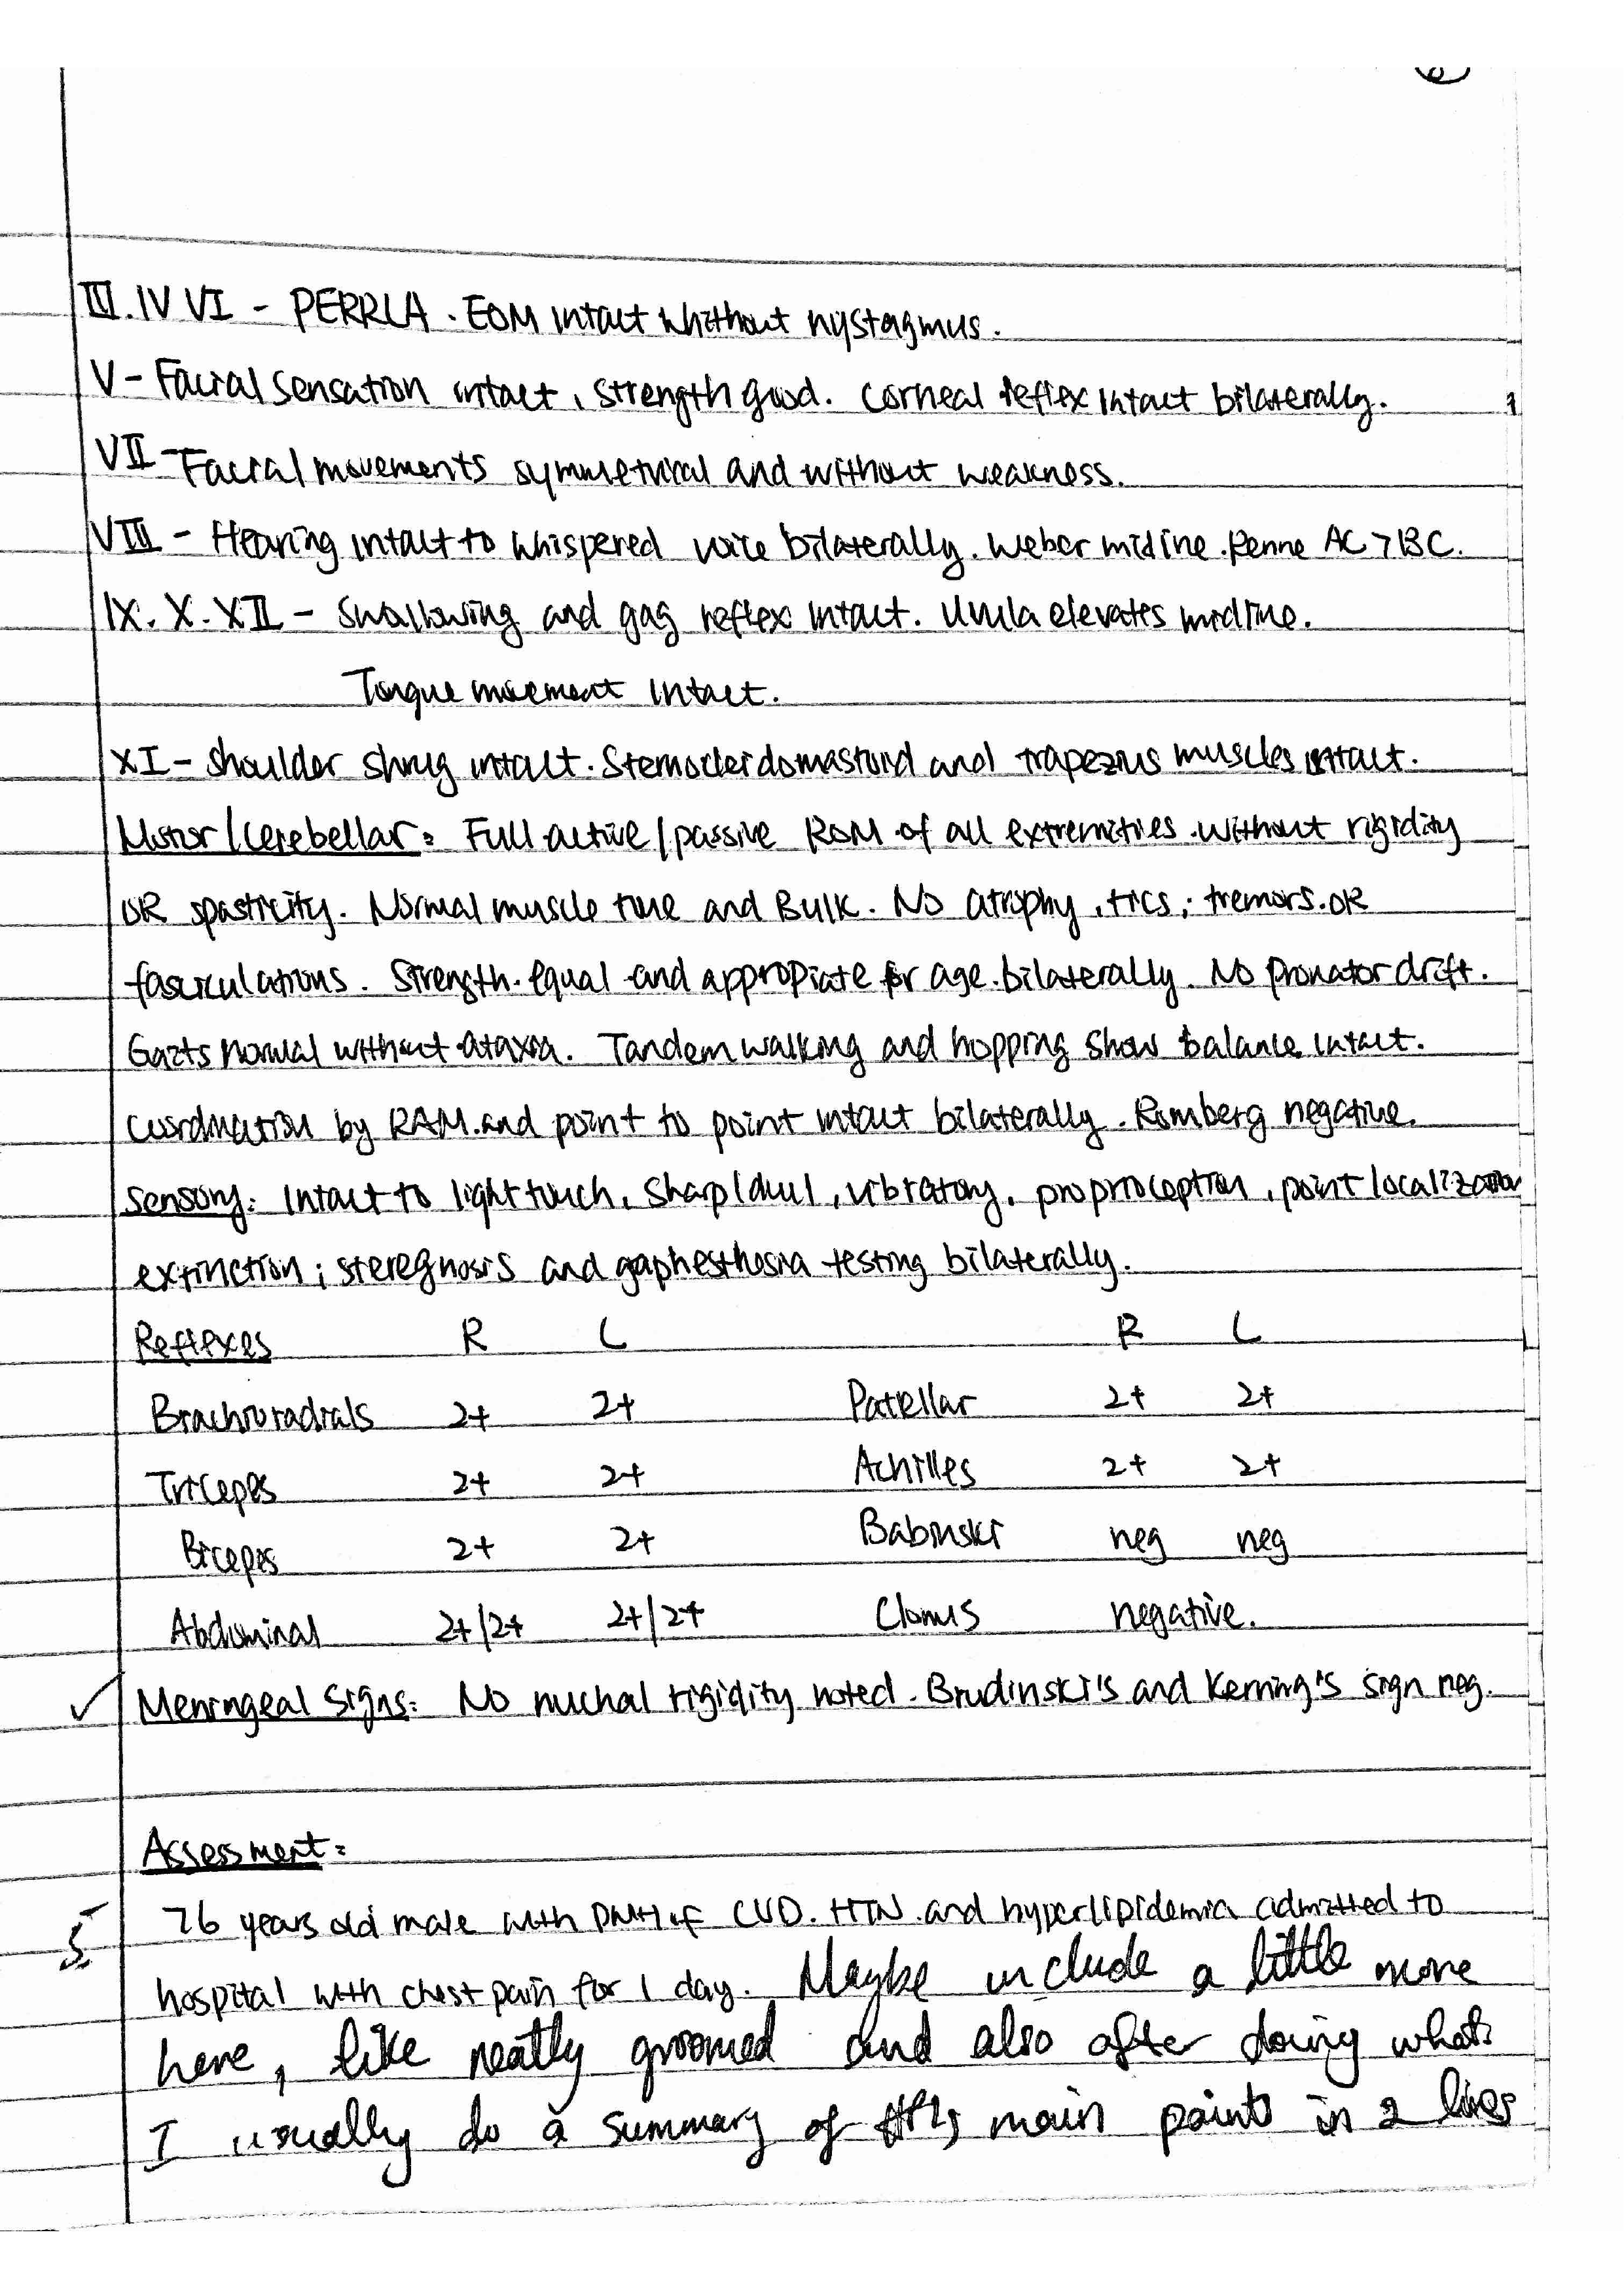 III. IV VI - PERRLA. EOM intact whithout nystagmus.
V - Facial sensation intact, strength good. Corneal reflex intact bilaterally.
VII - Facial movements symmetrical and without weakness.
VIII - Hearing intact to whispered voice bilaterally. Weber midline. Renne AC > BC.
IX. X. XII - Swallowing and gag reflex intact. Uvula elevates midline.
Tongue movement intact.
XI - Shoulder shrug intact. Sternocleidomastoid and trapezius muscles intact.
Motor/Cerebellar: Full active/passive ROM of all extremities without rigidity
OR spasticity. Normal muscle tone and Bulk. No atrophy, tics; tremors. OR
fasciculations. Strength equal and appropiate for age bilaterally. No pronator drift.
Gaits normal without ataxia. Tandem walking and hopping show balance intact.
Coordination by RAM and point to point intact bilaterally. Romberg negative.
Sensory: Intact to light touch, sharp/dull, vibratory, proprioception, point localization
extinction; steregnosis and gaphesthesia testing bilaterally.
Reflexes R L R L
Brachioradials 2+ 2+ Patellar 2+ 2+
Triceps 2+ 2+ Achilles 2+ 2+
Biceps 2+ 2+ Babinski neg neg
Abdominal 2+/2+ 2+/2+ Clonus negative.
✓ Meningeal Signs: No nuchal rigidity noted. Brudinski's and Kerning's sign neg.
Assessment:
76 years old male with PMH of CVD. HTN. and hyperlipidemia admitted to
hospital with chest pain for 1 day. Maybe include a little more
here, like neatly groomed and also after doing what
I usually do a summary of HPI's main points in 2 lines